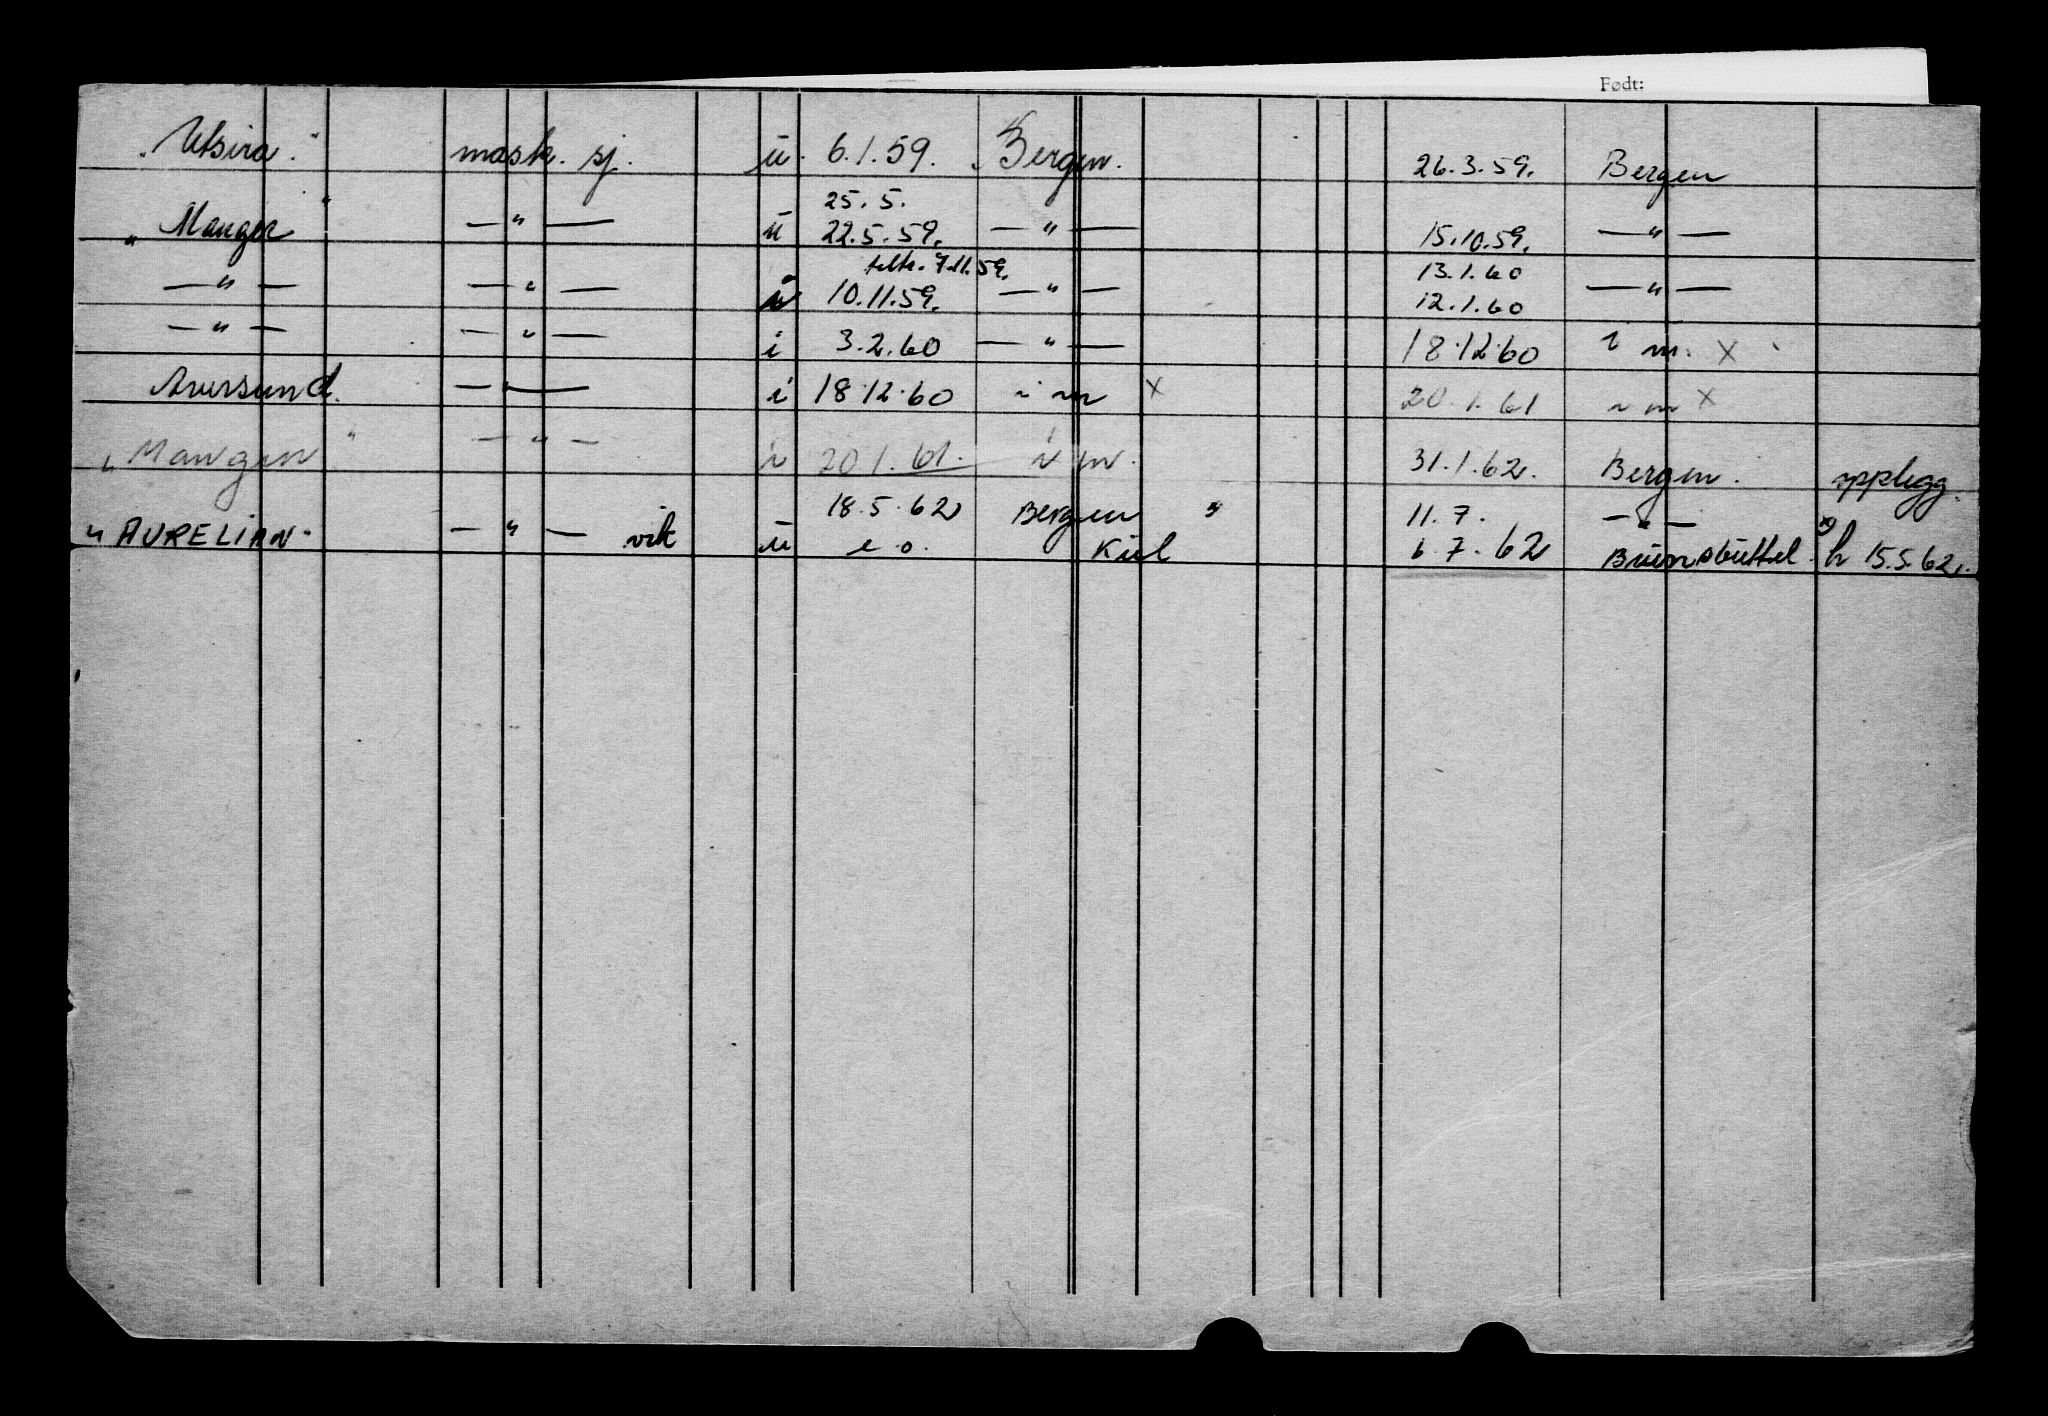 Født:
"Utsira." mask. sj. u. 6.1.59. Bergen. 26.3.59. Bergen
25.5.
"Manger" — " — u 22.5.59. — " — 15.10.59. — " —
7.11.59. 13.1.60
— " — — " — 10.11.59. — " — 12.1.60 — " —
— " — — " — i 3.2.60 — " — 18.12.60 i m. x
Aversund. — " — i 18.12.60 i m x 20.1.61 i m x
"Manger" — " — i 20.1.61. i m. 31.1.62. Bergen. opplegg.
18.5.62 Bergen " 11.7. — " —
"AURELIAN" — " — vik u e.o. Kiel 6.7.62 Brunsbuttel. x) h 15.5.62.